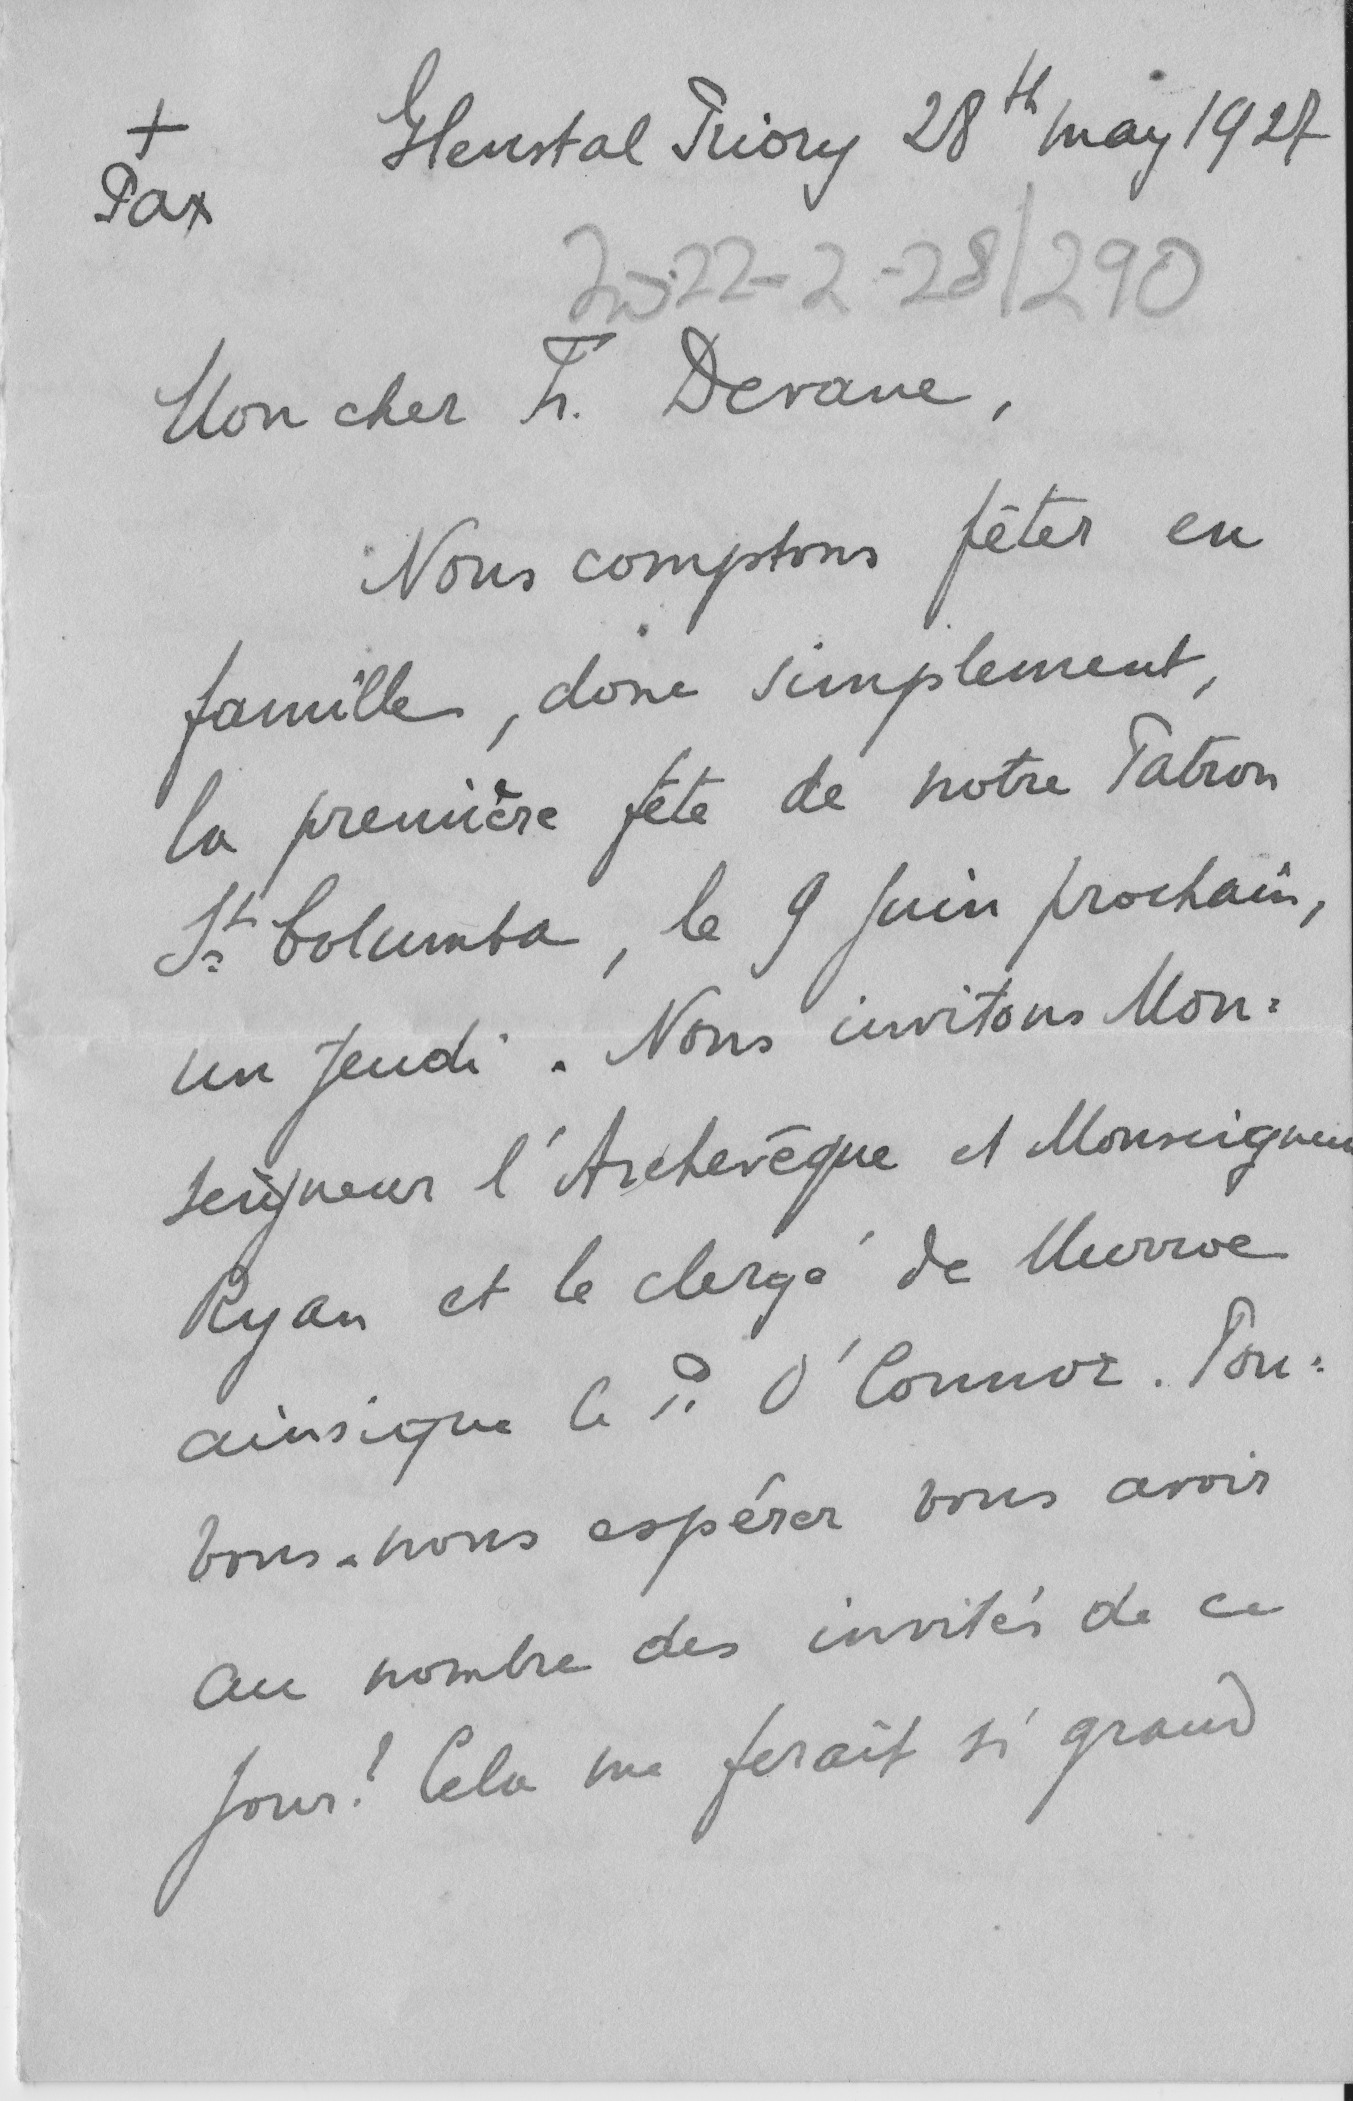 +
Pax
Glenstal Priory 28th May 1927
22-2-28/290
Mon cher Fr. Devane,
Nous comptons fêter en
famille, donc simplement,
la première fête de notre Patron
St Columba, le 9 Juin prochain,
un Jeudi. Nous invitons Mon=
seigneur l'Archevêque et Monseigneur
Ryan et le clergé de Murroe
ainsique le P. O'Connor. Pou=
vons-nous espérer vous avoir
au nombre des invités de ce
jour? Cela me ferait si grand